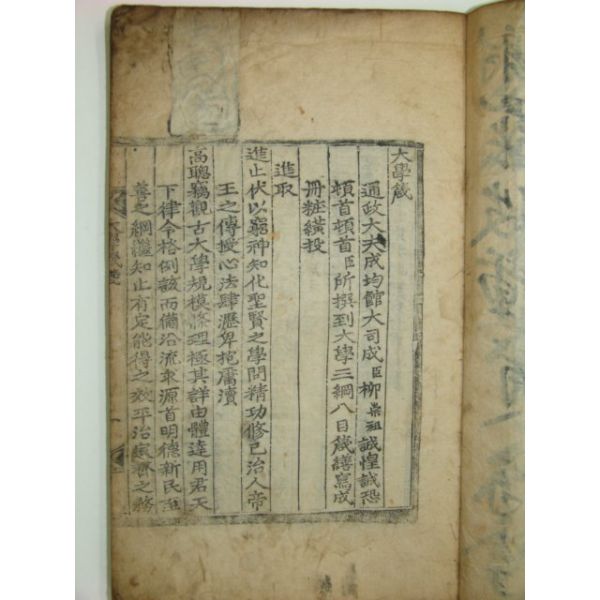 大學箴
通政大夫成均館大司成臣柳崇祖誠惶誠恐
頓首頓首臣所撰到大學三綱八目箴繕寫成
冊粧䌙投
進取
進止伏以窮神知化聖賢之學問精功修己治人帝
王之傳授心法肆瀝卑抱庸瀆
高聰竊觀古大學規模條理極其詳由體達用君天
下律令格例該而備沿流求源首明德新民至
善之綱繼知止有定能得之效平治家齊之務
大學箴
一